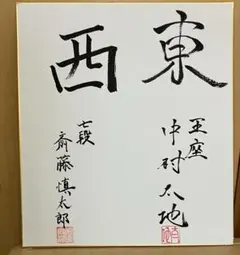 東
王座
中村太地
西
七段
斎藤慎太郎